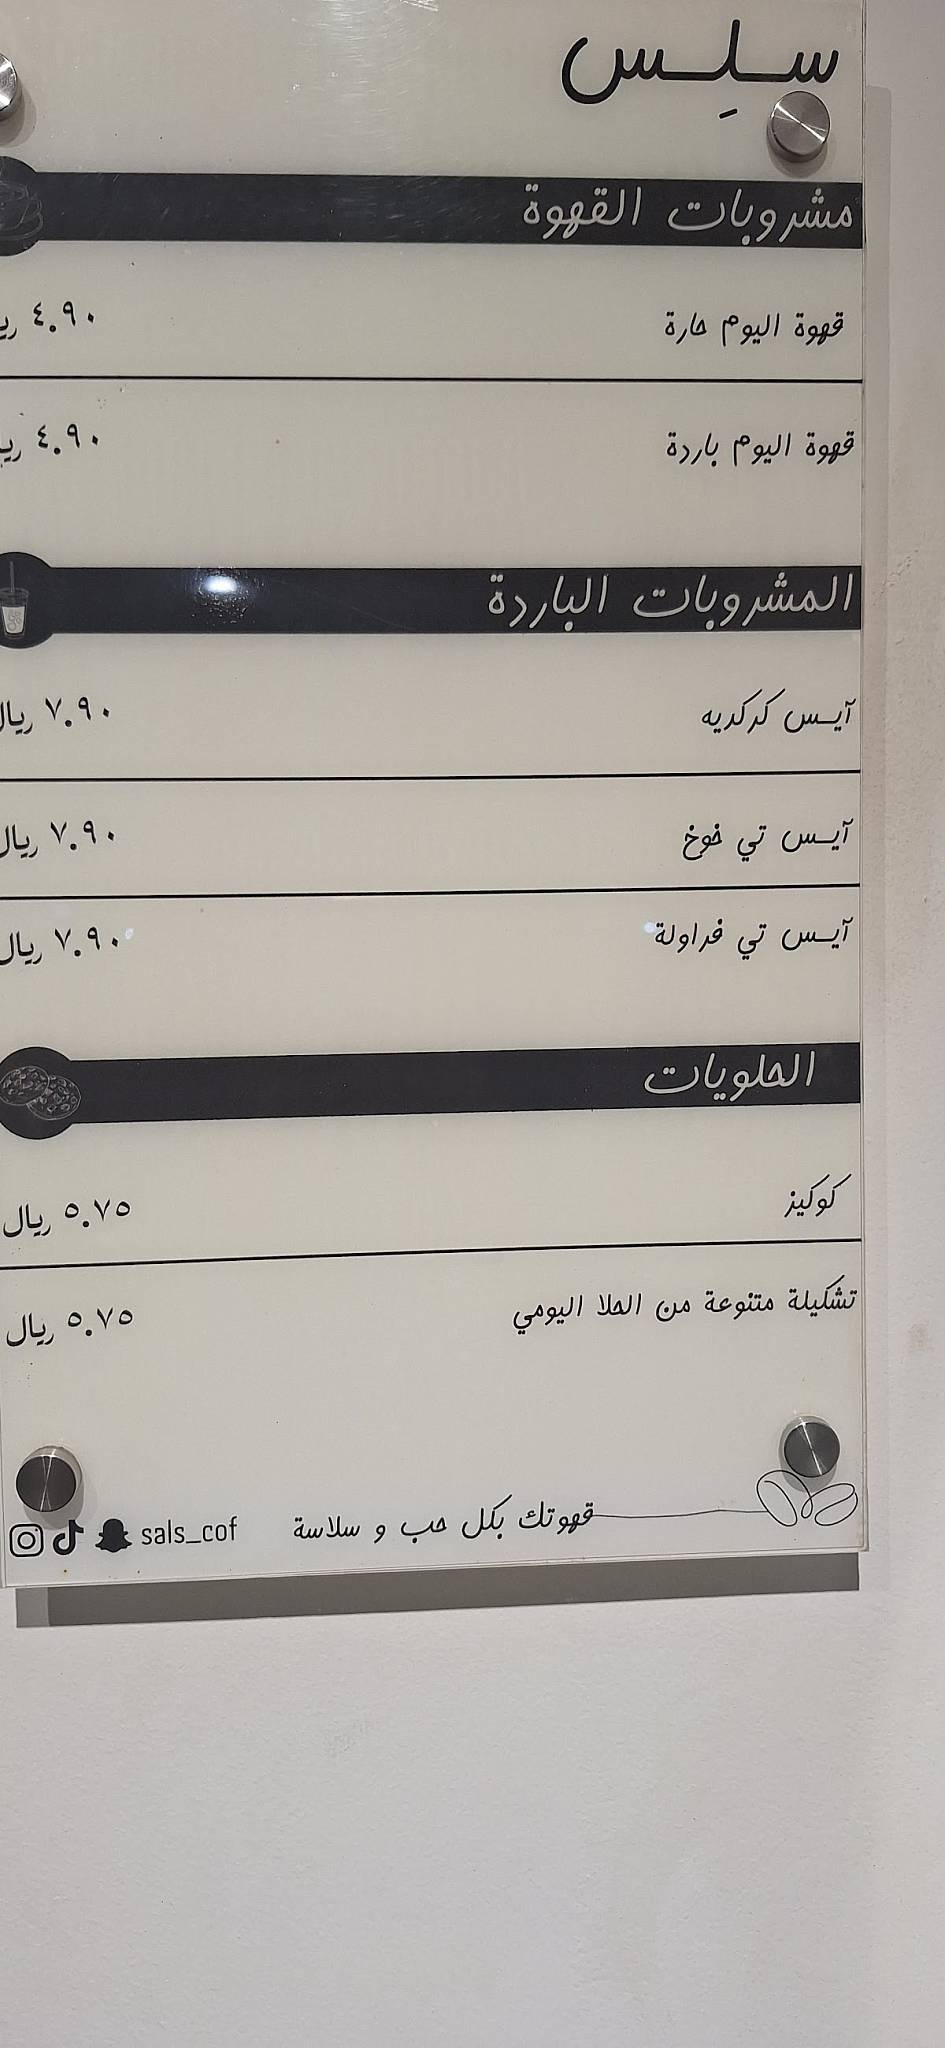 سلِس
مشروبات القهوة
قهوة اليوم حارة ٤.٩٠ ريا
قهوة اليوم باردة ٤.٩٠ ريا
المشروبات الباردة
آيس كركديه ٧.٩٠ ريال
آيس تي خوخ ٧.٩٠ ريال
آيس تي فراولة ٧.٩٠ ريال
الحلويات
كوكيز ٥.٧٥ ريال
تشكيلة متنوعة من الحلا اليومي ٥.٧٥ ريال
قهوتك بكل حب و سلاسة sals_cof